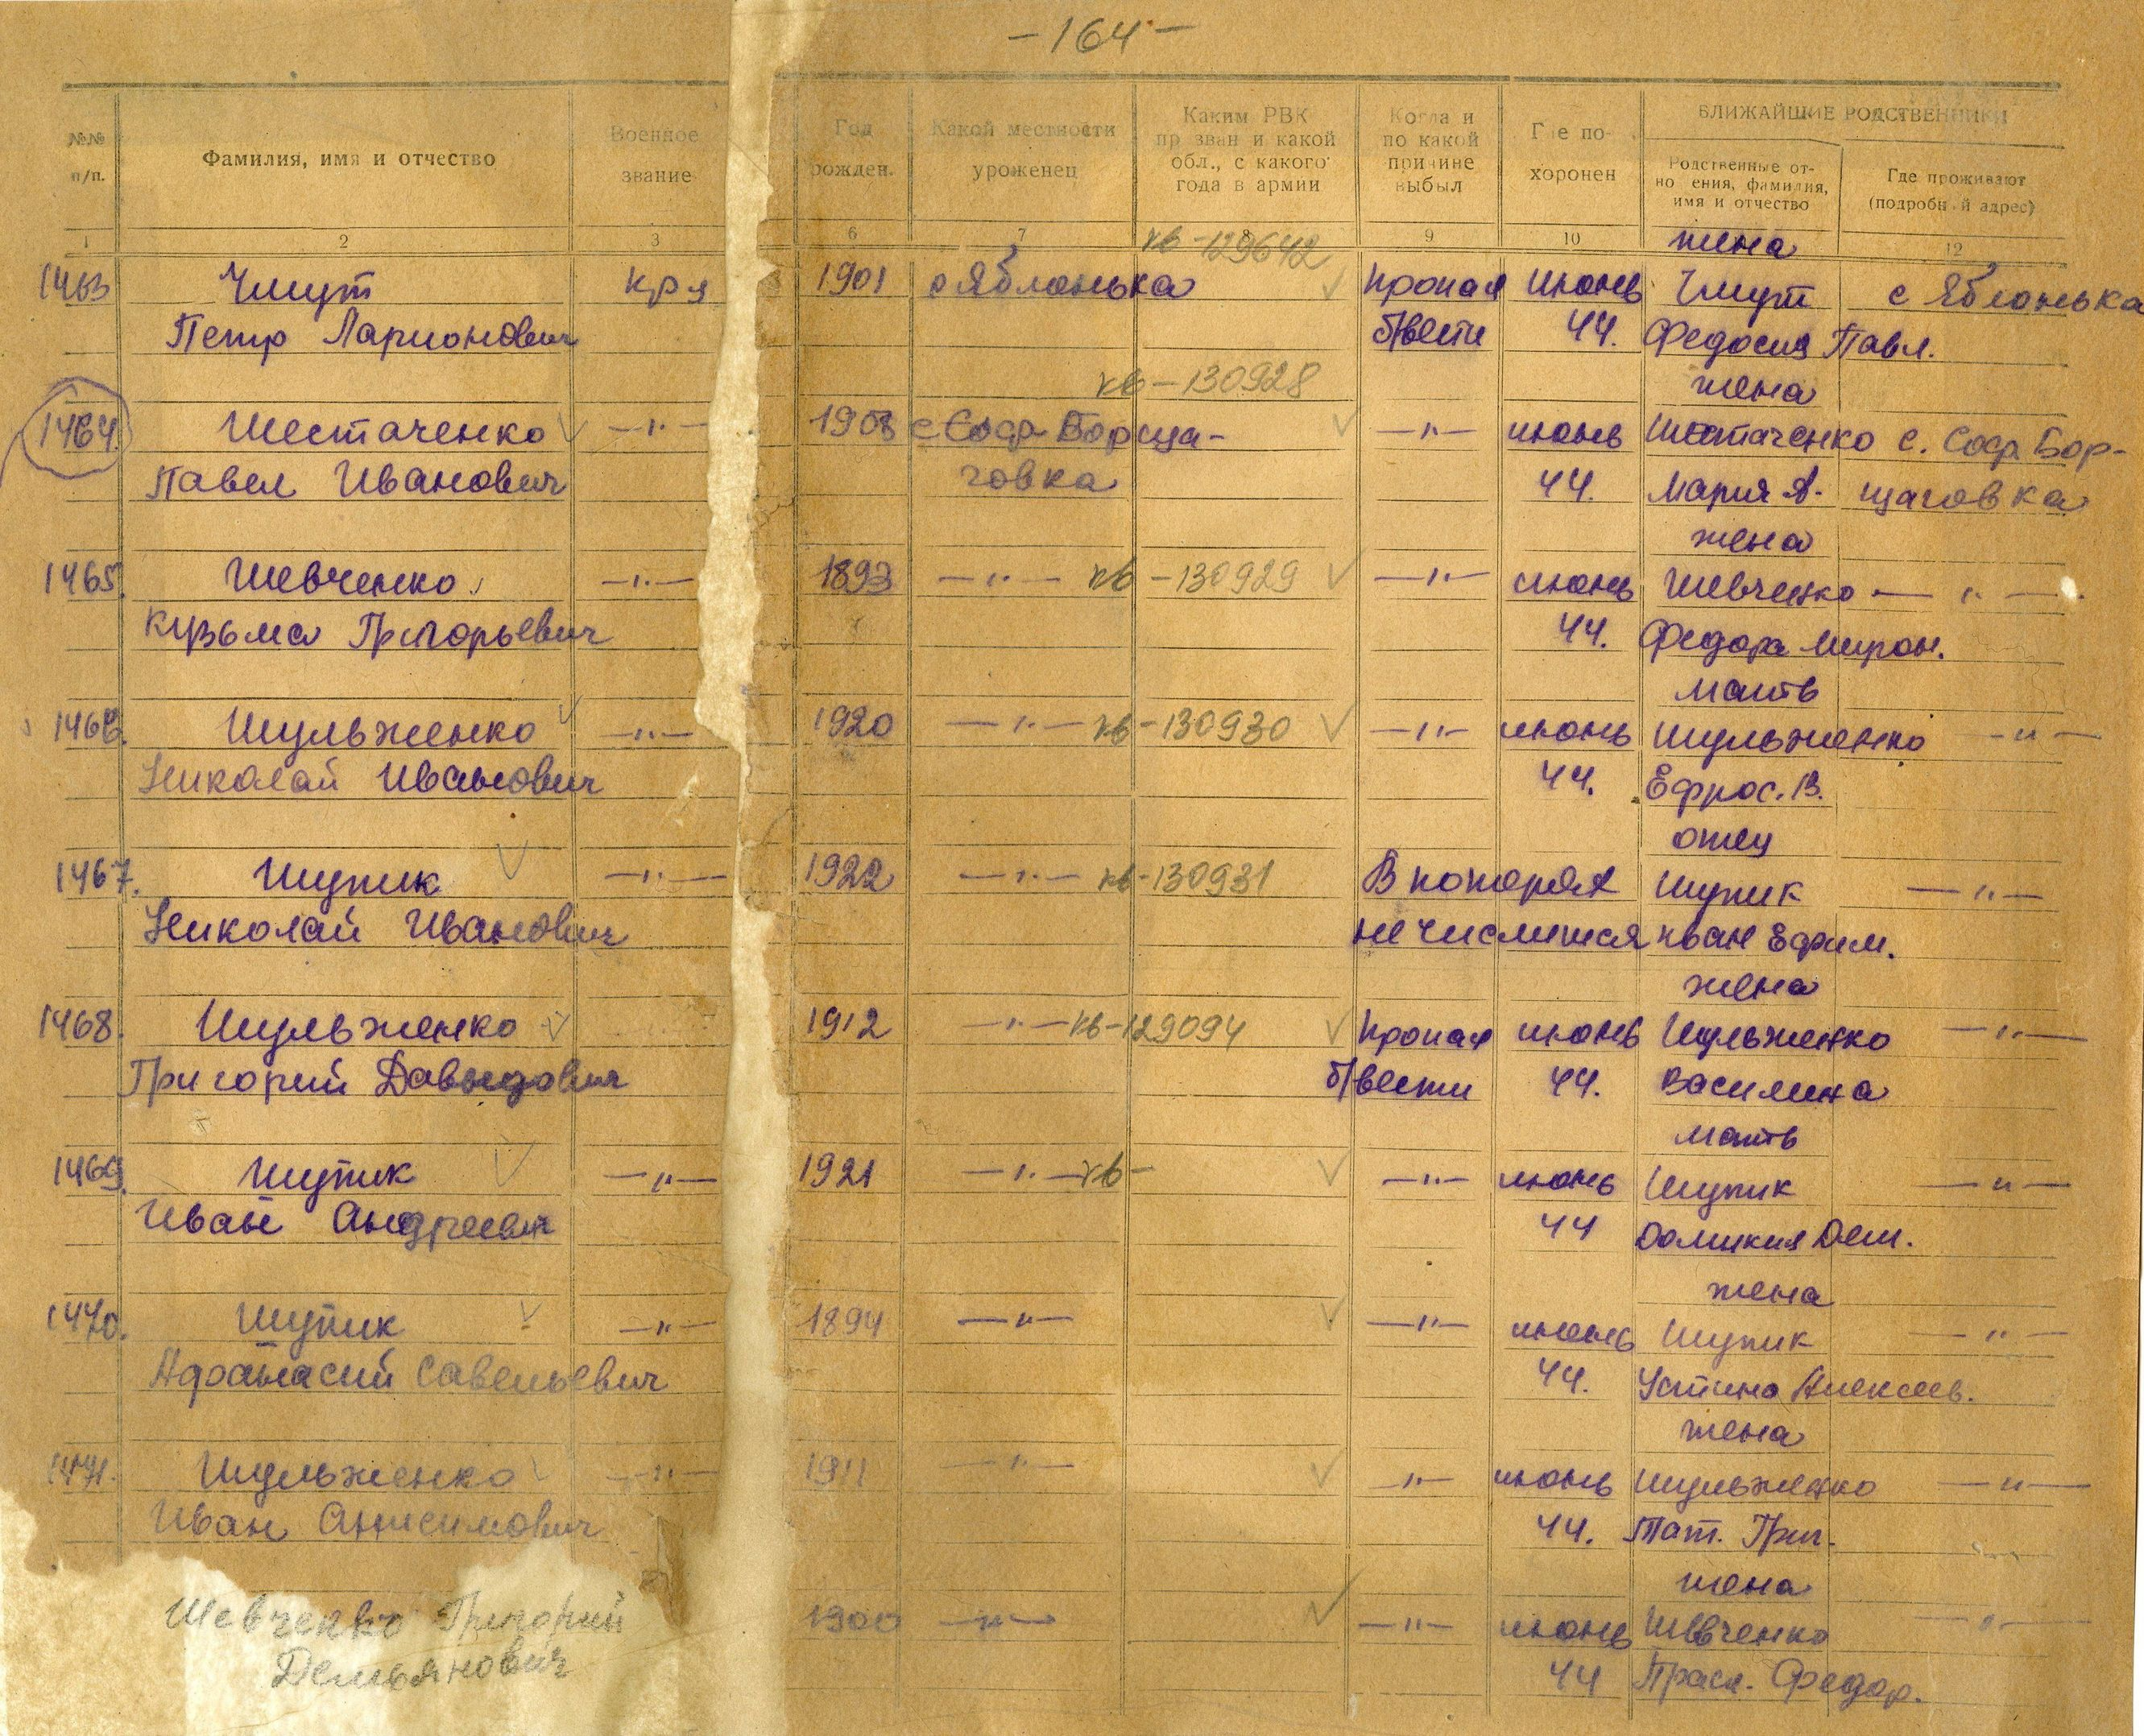 -164-
№№ п/п.
Фамилия, имя и отчество
Военное звание
Год рожден.
Какой местности уроженец
Каким РВК пр зван и какой обл., с какого года в армии
Когда и по какой причине выбыл
Где по- хоронен
БЛИЖАЙШИЕ РОДСТВЕННИКИ
Родственные от- но ения, фамилия, имя и отчество
Где проживают (подробн й адрес)
1 2 3 6 7 8 9 10 12
кв-129642 жена
1463 Чмут кр-ц 1901 с Яблонька Пропал июнь Чмут с Яблонька
Петр Ларионович б/вести 44. Федосия Павл.
кв-130928 жена
1464. Шестаченко —"— 1908 с Соф Борща- —"— июнь Шестаченко с. Соф. Бор-
Павел Иванович говка 44. Мария А. щаговка
жена
1465. Шевченко —"— 1893 —"— кв-130929 —"— июнь Шевченко —"—
Кузьма Григорьевич 44. Федора Мирон.
мать
1466. Шульженко —"— 1920 —"— кв-130930 —"— июнь Шульженко —"—
Николай Иванович 44. Ефрос. В.
отец
1467. Шупик —"— 1922 —"— кв-130931 В потерях Шупик —"—
Николай Иванович не числится Иван Ефим.
жена
1468. Шульженко —"— 1912 —"— кв-129094 Пропал июнь Шульженко —"—
Григорий Давыдович б/вести 44. Василина
мать
1469. Шупик —"— 1921 —"— кв- —"— июнь Шупик —"—
Иван Андреевич 44 Домикия Дем.
жена
1470. Шупик —"— 1894 —"— —"— июнь Шупик —"—
Афанасий Савельевич 44. Устина Алексеев.
жена
1471. Шульженко —"— 1911 —"— —"— июнь Шульженко —"—
Иван Анисимович 44. Тат. Григ.
жена
Шевченко Григорий 1900 —"— —"— июнь Шевченко —"—
Демьянович 44 Праск. Федор.